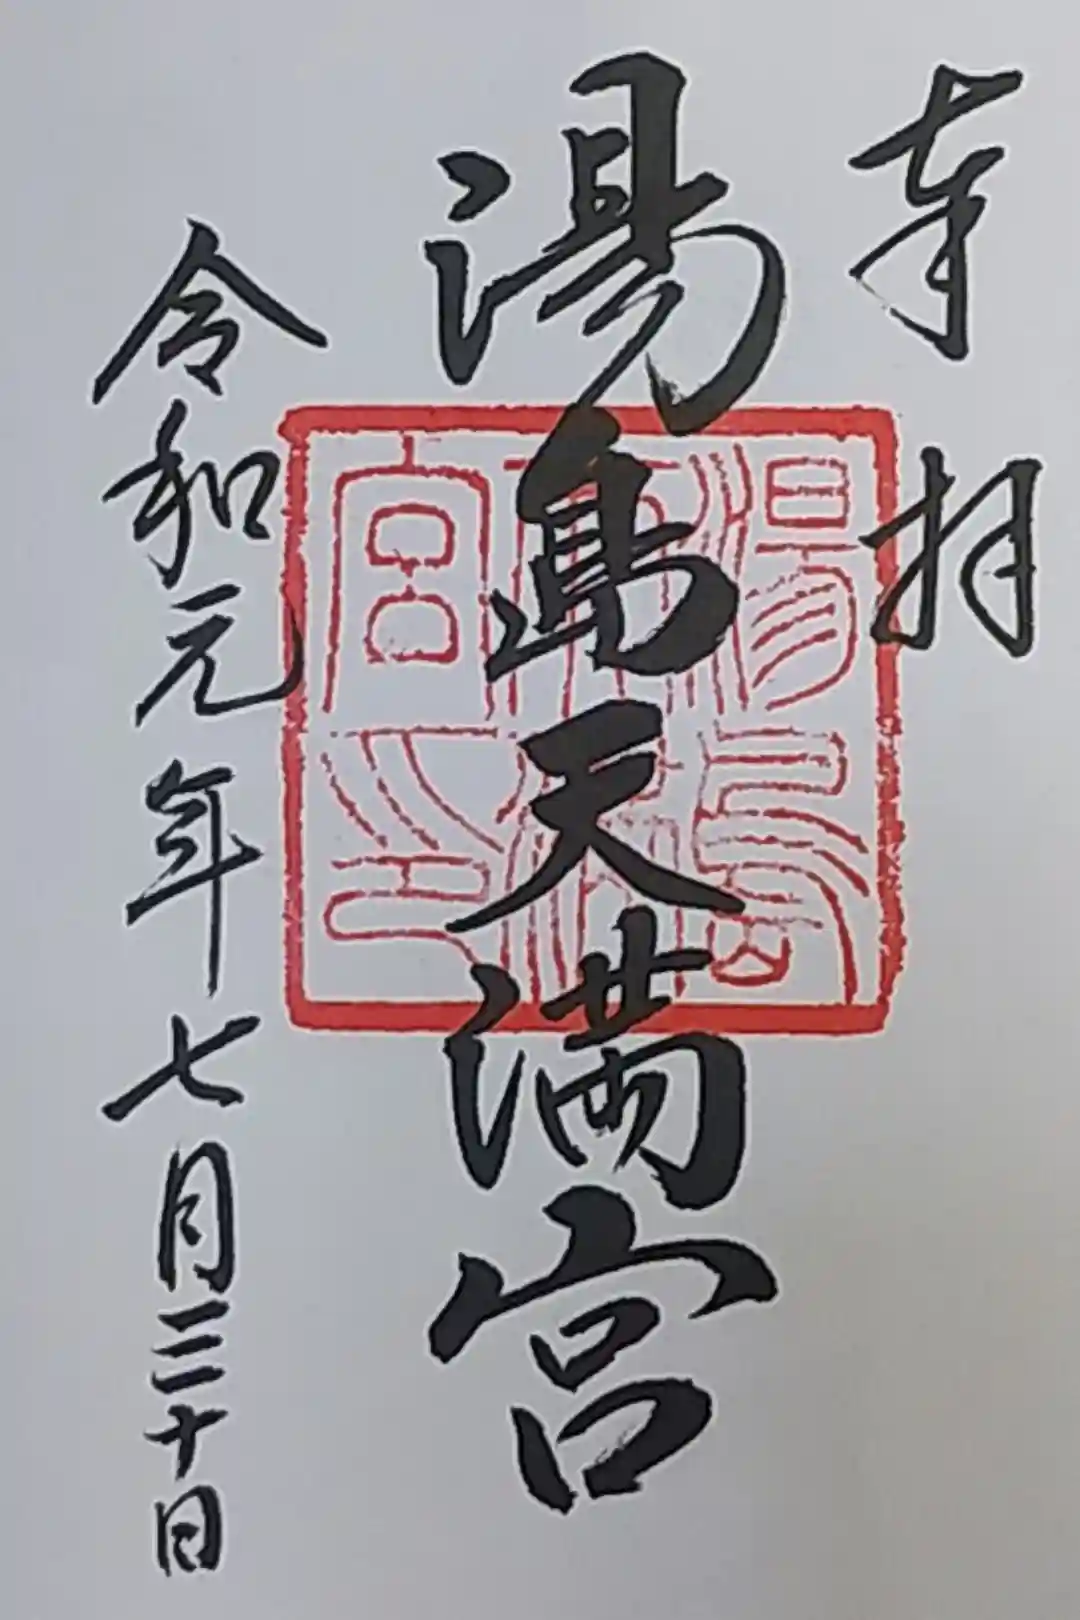 奉拝
湯島天満宮
令和元年七月三十日
湯島天満宮之印